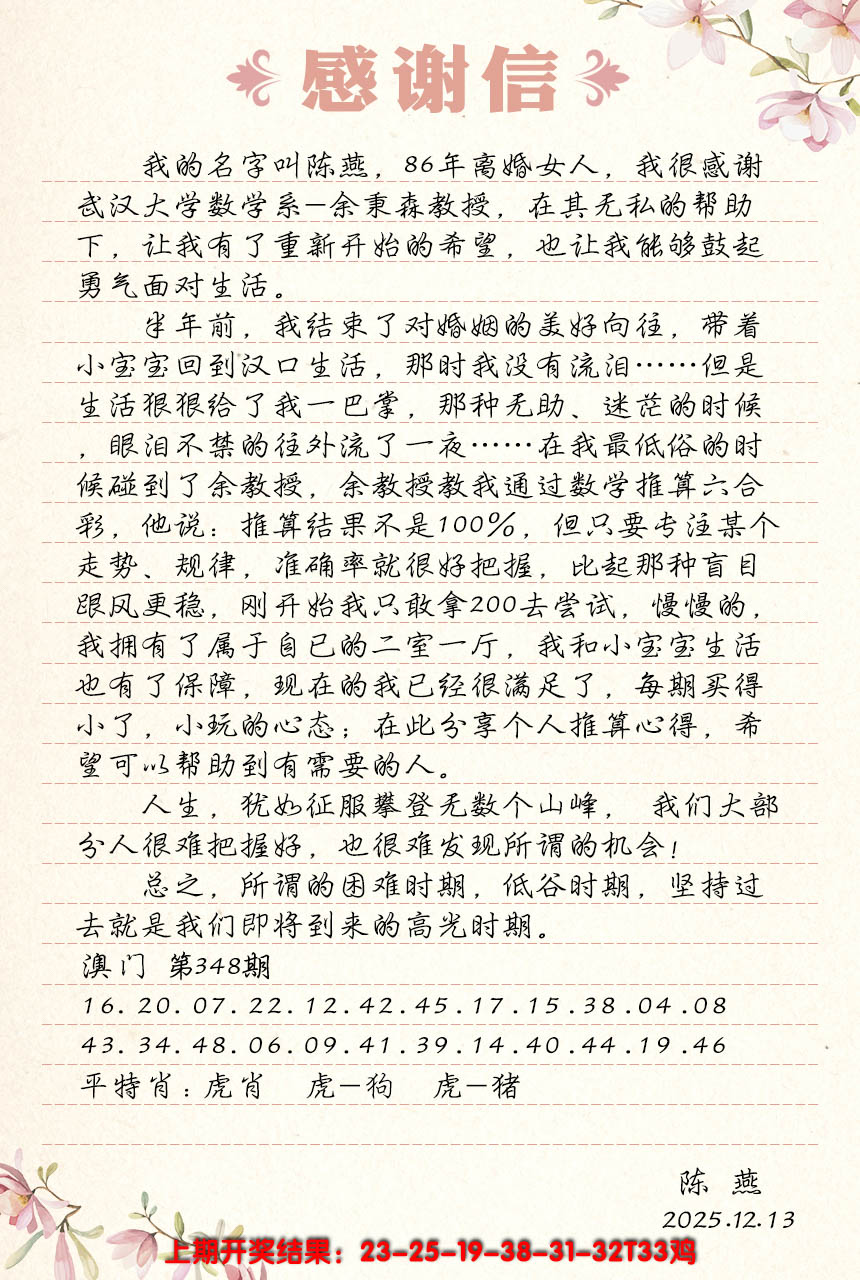 感谢信
我的名字叫陈燕，86年离婚女人，我很感谢
武汉大学数学系-余秉森教授，在其无私的帮助
下，让我有了重新开始的希望，也让我能够鼓起
勇气面对生活。
半年前，我结束了对婚姻的美好向往，带着
小宝宝回到汉口生活，那时我没有流泪……但是
生活狠狠给了我一巴掌，那种无助、迷茫的时候
，眼泪不禁的往外流了一夜……在我最低俗的时
候碰到了余教授，余教授教我通过数学推算六合
彩，他说：推算结果不是100%，但只要专注某个
走势、规律，准确率就很好把握，比起那种盲目
跟风更稳，刚开始我只敢拿200去尝试，慢慢的，
我拥有了属于自已的二室一厅，我和小宝宝生活
也有了保障，现在的我已经很满足了，每期买得
小了，小玩的心态；在此分享个人推算心得，希
望可以帮助到有需要的人。
人生，犹如征服攀登无数个山峰， 我们大部
分人很难把握好，也很难发现所谓的机会！
总之，所谓的困难时期，低谷时期，坚持过
去就是我们即将到来的高光时期。
澳门 第348期
16.20.07.22.12.42.45.17.15.38.04.08
43.34.48.06.09.41.39.14.40.44.19.46
平特肖：虎肖 虎-狗 虎-猪
陈 燕
2025.12.13
上期开奖结果：23-25-19-38-31-32T33鸡